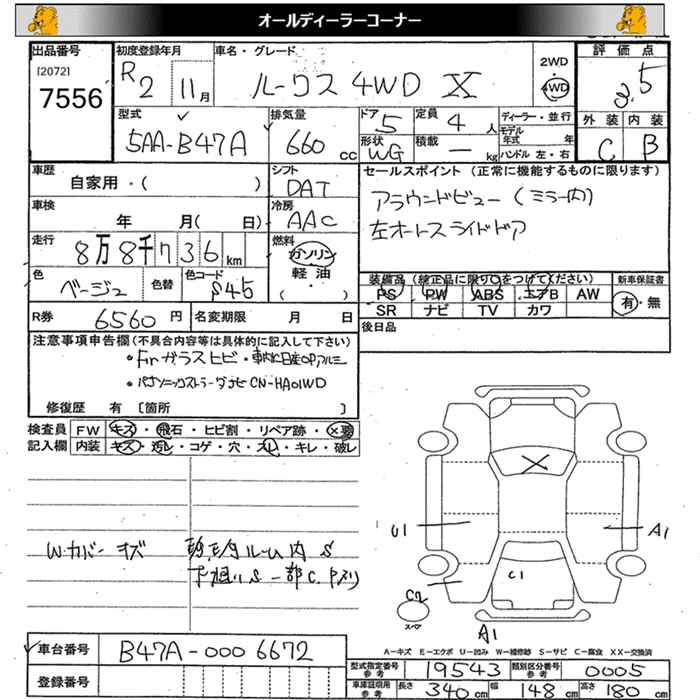 オールディーラーコーナー
出品番号
[2072]
7556
初度登録年月
R2 11月
車名・グレード
ルークス 4WD X
2WD
・
4WD
評価点
3.5
外装 内装
C B
型式
5AA-B47A
排気量
660 cc
ドア 5
定員 4 人
形状 WG
積載 ー kg
ディーラー・並行
モデル年式 年
ハンドル 左・右
車歴
自家用・( )
シフト
DAT
車検
年 月( 日)
冷房
AAC
走行
8万8千736km
燃料
ガソリン
軽油
・( )
色
ベージュ
色替
色コード
S45
セールスポイント (正常に機能するものに限ります)
アラウンドビュー(ミラー内)
左オートスライドドア
装備品(純正品に限り○をつけてください)
新車保証書
PS PW ABS エアB AW
有・無
SR ナビ TV カワ
R券 6560円
名変期限 月 日
後日品
注意事項申告欄(不具合内容等は具体的に記入して下さい)
・Frガラスヒビ・車内に日産OPアルミ
・パナソニックストラーダナビ CN-HA01WD
修復歴 有 [箇所 ]
検査員記入欄
FW キズ・飛石・ヒビ割・リペア跡・X要
内装 キズ・汚レ・コゲ・穴・スレ・キレ・破レ
W.カバー キズ
ルーム内 S
下廻りS 一部C.Pスリ
U1
A1
C1
C2
スペア
A1
A-キズ E-エクボ U-凹み W-補修跡 S-サビ C-腐食 XX-交換済
車台番号
B47A-0006672
登録番号
型式指定番号 参考 19543
類別区分番号 参考 0005
車庫証明用 参考 長さ 340cm 幅 148cm 高さ 180cm